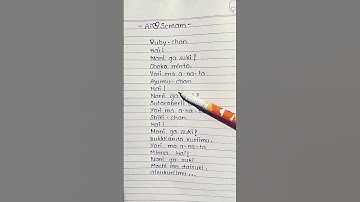 - AiScream -
Ruby - chan
Hai!
Nani ga suki?
Choko minto,
Yori mo a-na-ta
Ayumu - chan
Hai!
Nani ga
Sutoroberii
Yori mo a-na-
Shiki - chan
Hai!
Nani ga suki?
kuriimu,
Yori mo a-na-ta
Minna Hai!
Nani ga suki
Mochi ron daisuki,
aisukuriimu...